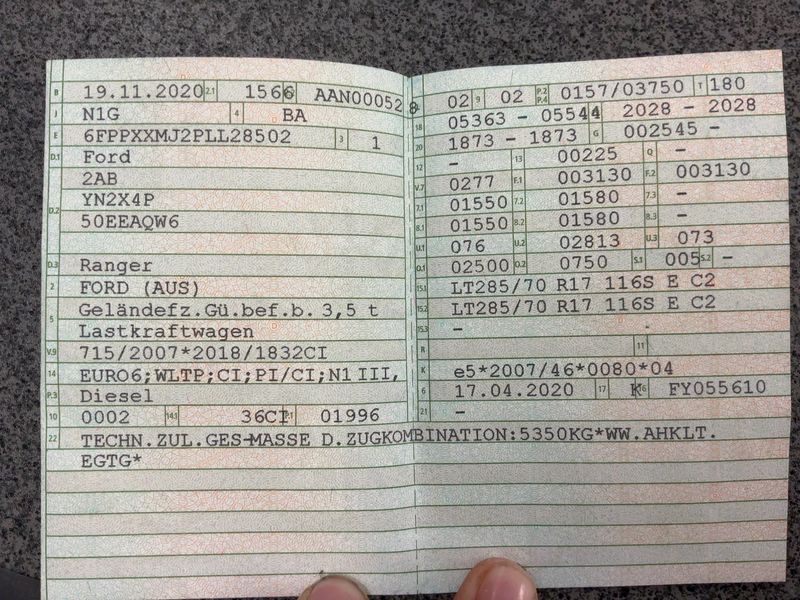 B 19.11.2020 2.1 1566 AAN000528
J N1G 4 BA
E 6FPPXXMJ2PLL28502 3 1
D.1 Ford
2AB
D.2 YN2X4P
50EEAQW6
D.3 Ranger
2 FORD (AUS)
5 Geländefz.Gü.bef.b. 3,5 t
Lastkraftwagen
V.9 715/2007*2018/1832CI
14 EURO6;WLTP;CI;PI/CI;N1III,
P.3 Diesel
10 0002 14.1 36CI P.1 01996
22 TECHN.ZUL.GES-MASSE D.ZUGKOMBINATION:5350KG*WW.AHKLT.
EGTG*
L 02 9 02 P.2 P.4 0157/03750 T 180
18 05363 - 05544 2028 - 2028
20 1873 - 1873 G 002545 -
12 - 13 00225 Q -
V.7 0277 F.1 003130 F.2 003130
7.1 01550 7.2 01580 7.3 -
8.1 01550 8.2 01580 8.3 -
U.1 076 U.2 02813 U.3 073
O.1 02500 O.2 0750 S.1 005 S.2 -
15.1 LT285/70 R17 116S E C2
15.2 LT285/70 R17 116S E C2
15.3 -
R 11
K e5*2007/46*0080*04
6 17.04.2020 17 K 16 FY055610
21 -